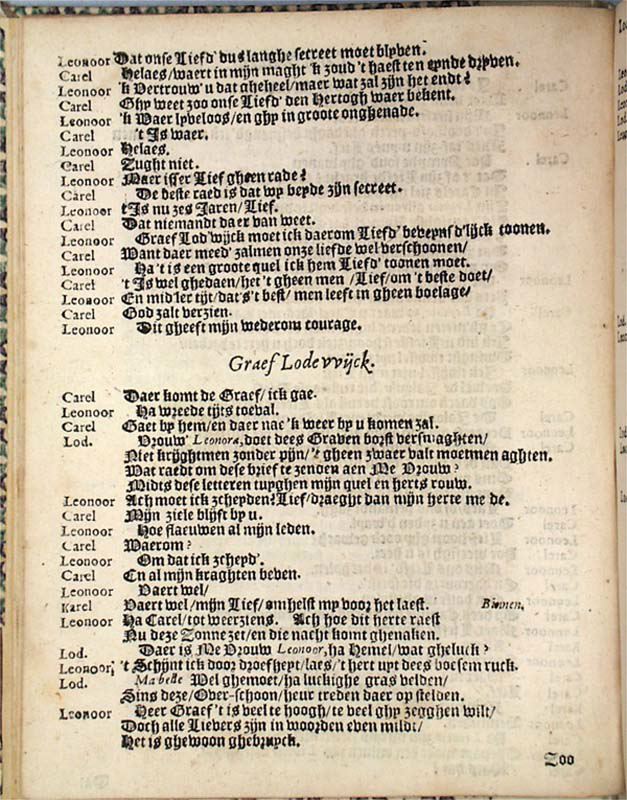 Leonoor Dat onse Liefd' dus langhe secreet moet blyven.
Carel Helaes/waert in mijn maght 'k zoud 't haest ten eynde dryven.
Leonoor 'k Vertrouw' u dat gheheel/maer wat zal zijn het endt?
Carel Ghy weet zoo onse Liefd' den Hertogh waer bekent.
Leonoor 'k Waer lyveloos/en ghy in groote onghenade.
Carel 't Is waer.
Leonoor Helaes.
Carel Zught niet.
Leonoor Maer isser Lief gheen rade?
Carel De beste raed is dat wy beyde zijn secreet.
Leonoor t'Is nu zes Jaren/Lief.
Carel Dat niemandt daer van weet.
Leonoor Graef Lod'wijck moet ick daerom Liefd' beveynsd'lijck toonen.
Carel Want daer meed' zalmen onze liefde wel verschoonen/
Leonoor Ha 't is een groote quel ick hem Liefd' toonen moet.
Carel 't Is wel ghedaen/het 't gheen men /Lief/om 't beste doet/
Leonoor En mid'ler tijt/dat's 't best/ men leeft in gheen boelage/
Carel God zalt verzien.
Leonoor Dit gheeft mijn wederom courage.
Graef Lodevvijck.
Carel Daer komt de Graef/ick gae.
Leonoor Ha wreede tijts toeval.
Carel Gaet by hem/en daer nae 'k weer by u komen zal.
Lod. Vrouw' Leonora, doet dees Graven borst versmaghten/
Niet krijghtmen zonder pijn/'t gheen zwaer valt moetmen aghten.
Wat raedt om dese brief te zenden aen Me Vrouw?
Midts dese letteren tuyghen mijn quel en herts rouw.
Leonoor Ach moet ick scheyden? Lief/draeght dan mijn herte me de.
Carel Mijn ziele blijft by u.
Leonoor Hoe flaeuwen al mijn leden.
Carel Waerom?
Leonoor Om dat ick scheyd'.
Carel En al mijn kraghten beven.
Leonoor Vaert wel/
Karel Vaert wel/mijn Lief/omhelst my voor het laest. Binnen.
Leonoor Ha Carel/tot weerziens. Ach hoe dit herte raest
Nu deze Zonne zet/en die nacht komt ghenaken.
Lod. Daer is Me Vrouw Leonoor, ha Hemel/wat gheluck?
Leonoor, 't Schijnt ick door droefheyt/laes/'t hert uyt dees boesem ruck.
Lod. Ma belle Wel ghemoet/ha luckighe gras velden/
Sins deze/Over-schoon/heur treden daer op stelden.
Leonoor Heer Graef 't is veel te hoogh/te veel ghy zegghen wilt/
Doch alle Lievers zijn in woorden even mildt/
Het is ghewoon ghebruyck.
Zoo